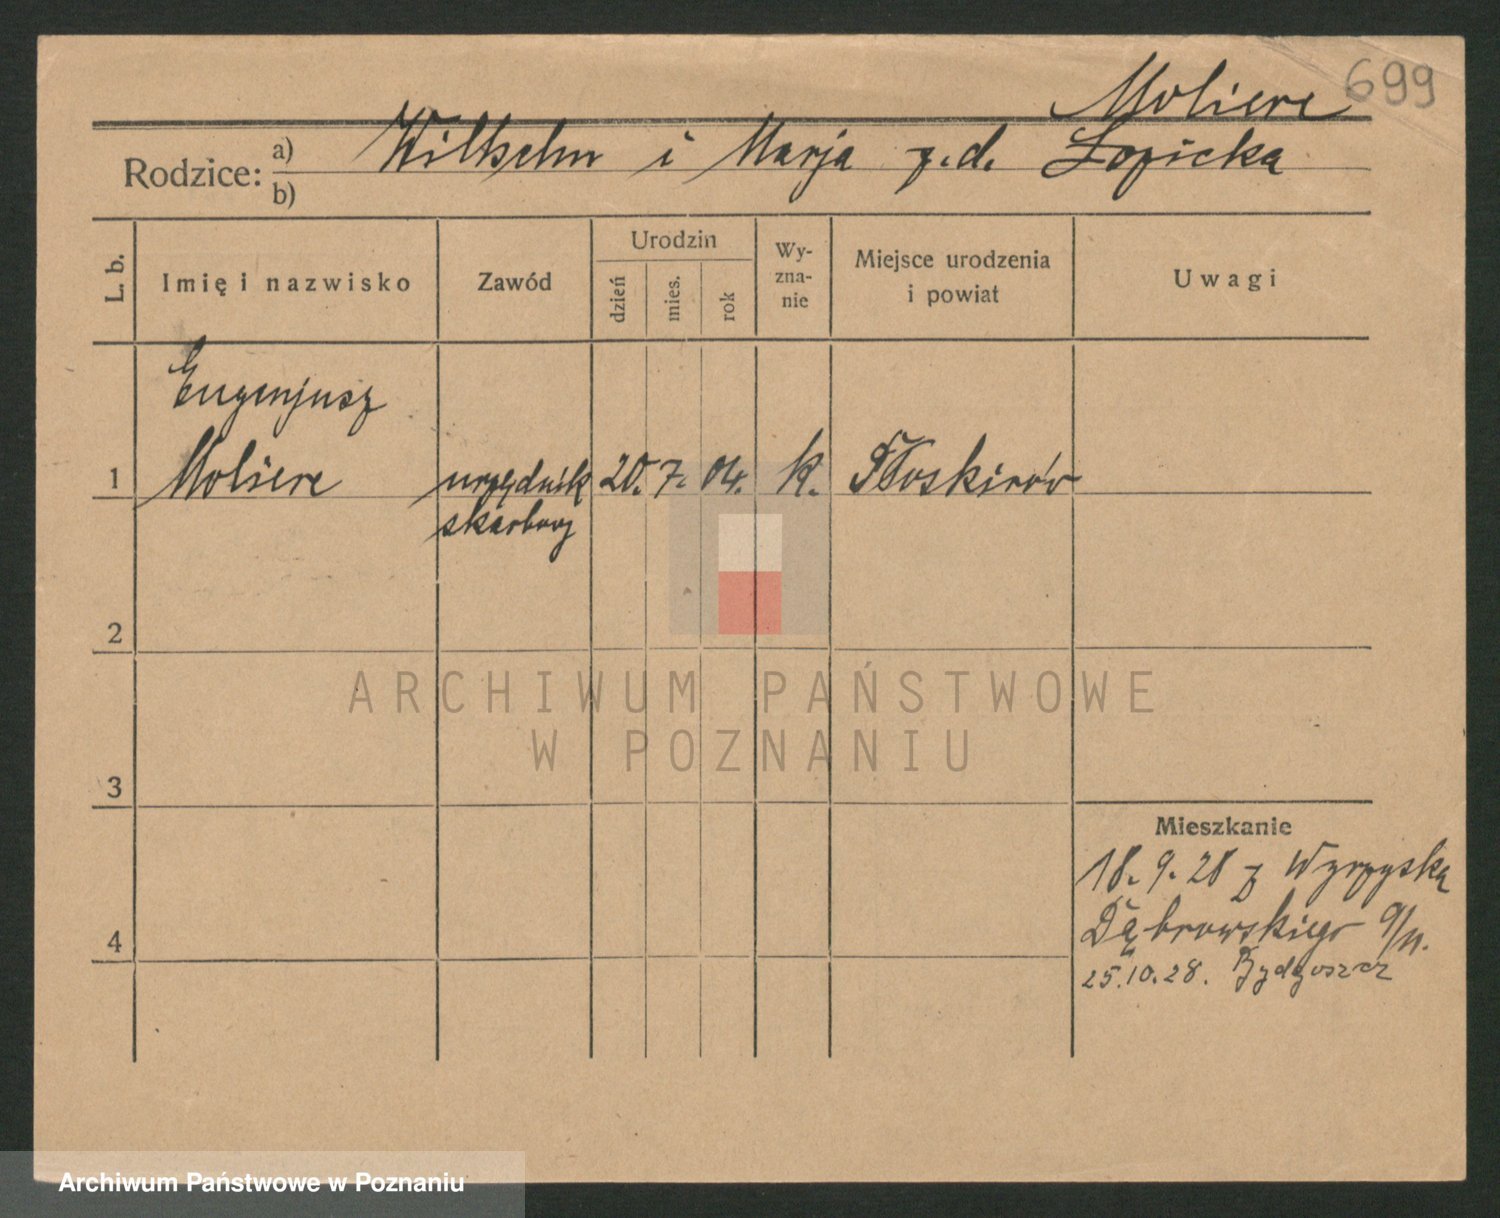 699
Moliere
Rodzice: a) Wilhelm i Marja z.d. Łopicka
b)
L. b.
Imię i nazwisko
Zawód
Urodzin
dzień
mies.
rok
Wy-
zna-
nie
Miejsce urodzenia
i powiat
Uwagi
Eugenjusz
1 Moliere urzędnik 20. 7. 04. k. Płoskirów
skarbowy
2
3
4
Mieszkanie
18. 9. 28 z Wyrzyska
Dąbrowskiego 9/II.
25.10.28. Bydgoszcz
ARCHIWUM PAŃSTWOWE
W POZNANIU
Archiwum Państwowe w Poznaniu